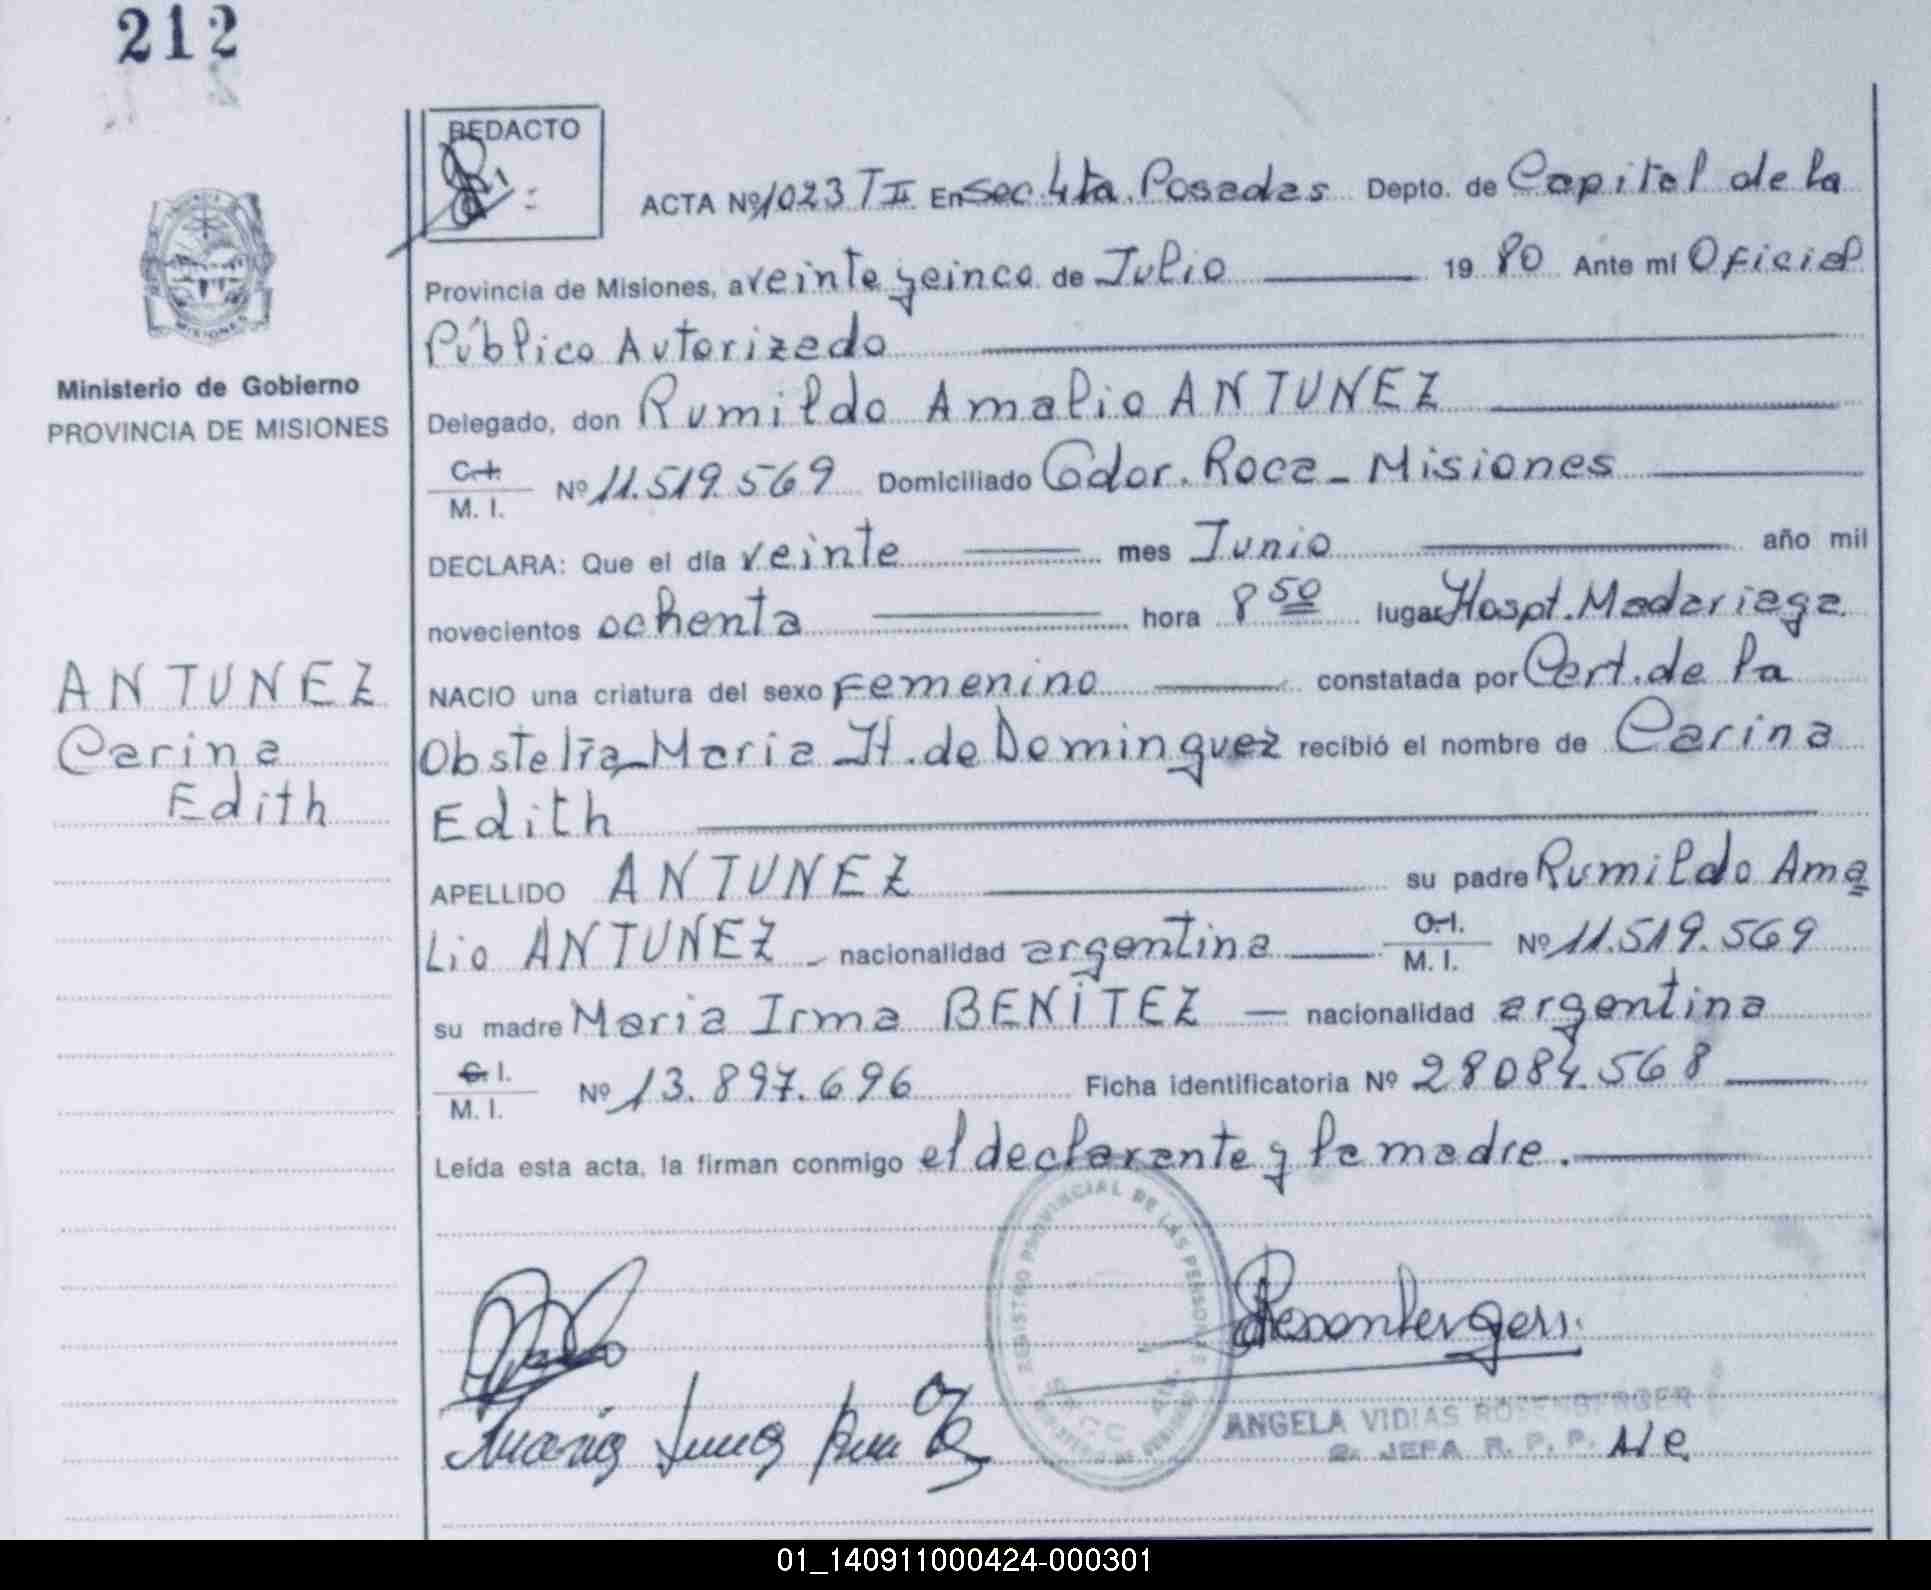 212
REDACTO
ACTA Nº 1023 T II En Sec. 4ta. Posadas Depto. de Capital de la
Provincia de Misiones, a veinte y cinco de Julio 19 80 Ante mi Oficial
Público Autorizado
Ministerio de Gobierno
PROVINCIA DE MISIONES
Delegado, don Rumildo Amalio ANTUNEZ
C.I.
M. I. Nº 11.519.569 Domiciliado Gdor. Roca - Misiones
DECLARA: Que el día veinte mes Junio año mil
novecientos ochenta hora 8 50 lugar Hospt. Madariaga
ANTUNEZ
Carina
Edith
NACIO una criatura del sexo femenino constatada por Cert. de la
Obstetra Maria H. de Dominguez recibió el nombre de Carina
Edith
APELLIDO ANTUNEZ su padre Rumildo Ama
Lio ANTUNEZ nacionalidad argentina C.I.
M. I. Nº 11.519.569
su madre Maria Irma BENITEZ nacionalidad argentina
C. I.
M. I. Nº 13.897.696 Ficha identificatoria Nº 28084.568
Leída esta acta, la firman conmigo el declarante y la madre.
REGISTRO PROVINCIAL DE LAS PERSONAS
ANGELA VIDIAS ROSENBERGER
2. JEFA R. P. P.
01_140911000424-000301